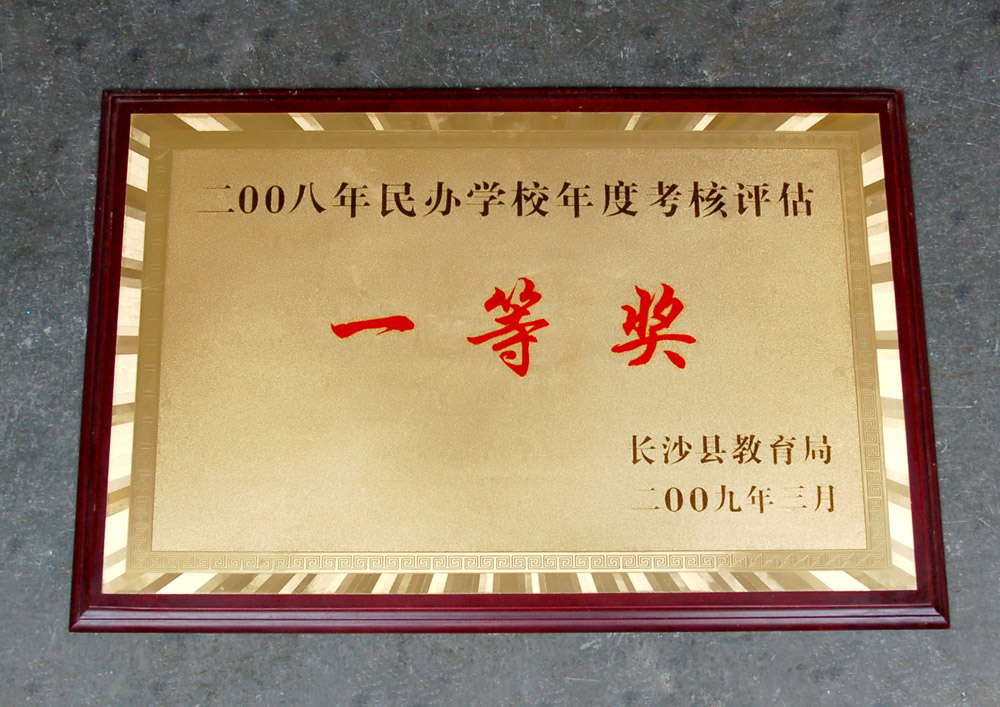 二00八年民办学校年度考核评估
一等奖
长沙县教育局
二00九年三月